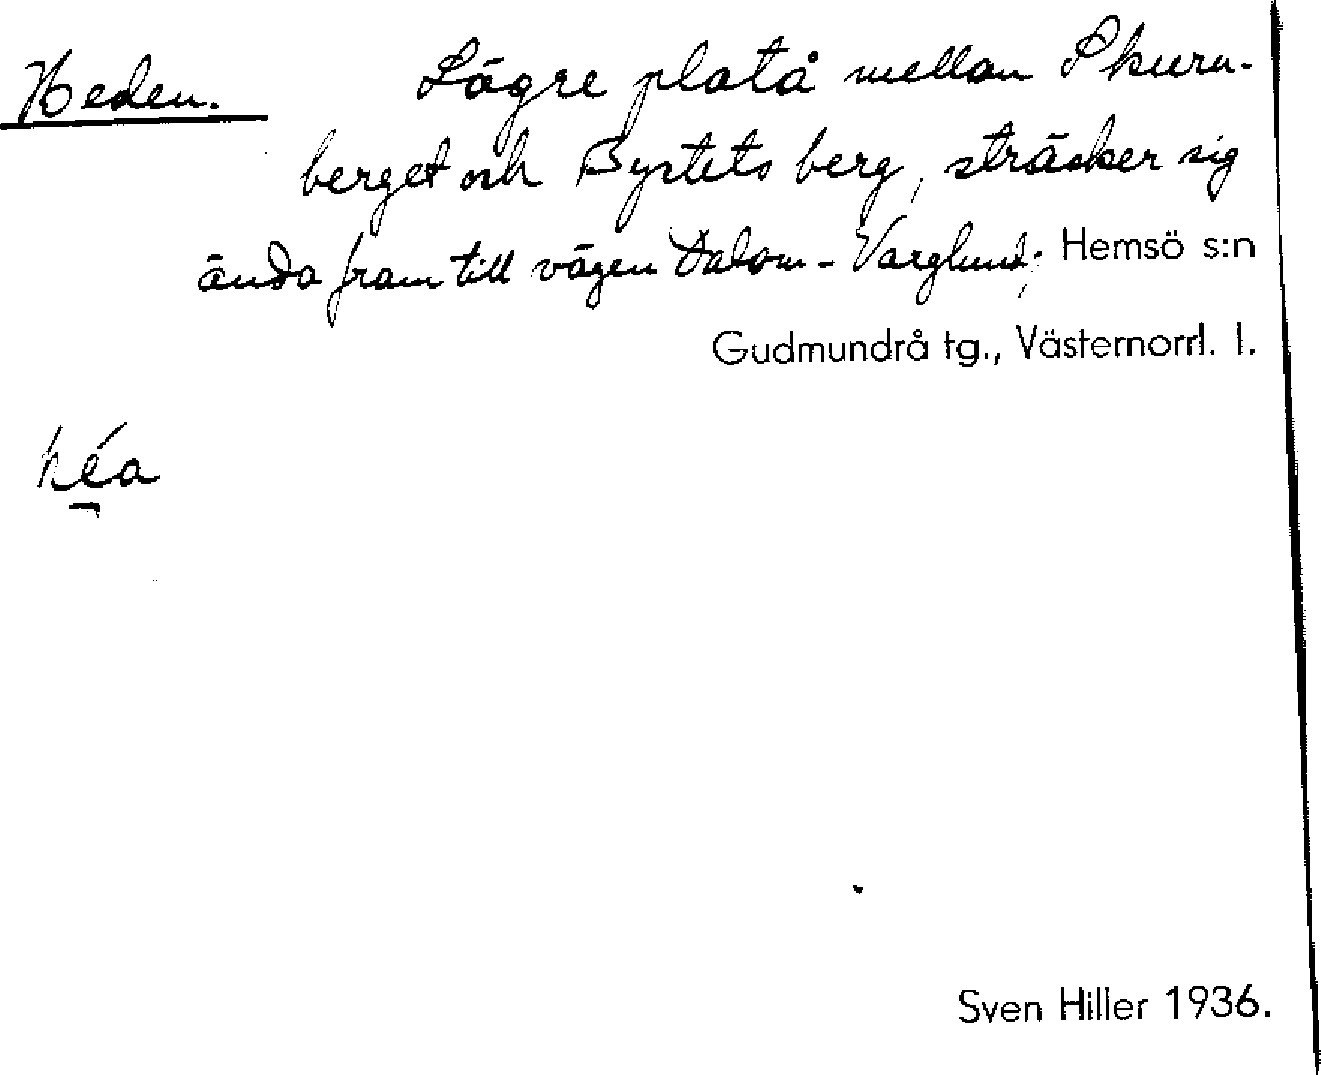 Heden. Lägre platå mellan Skuru-
berget och Bystets berg, sträcker sig
ända fram till vägen Dalom - Varglund; Hemsö s:n
Gudmundrå tg., Västernorrl. l.
héa
Sven Hiller 1936.